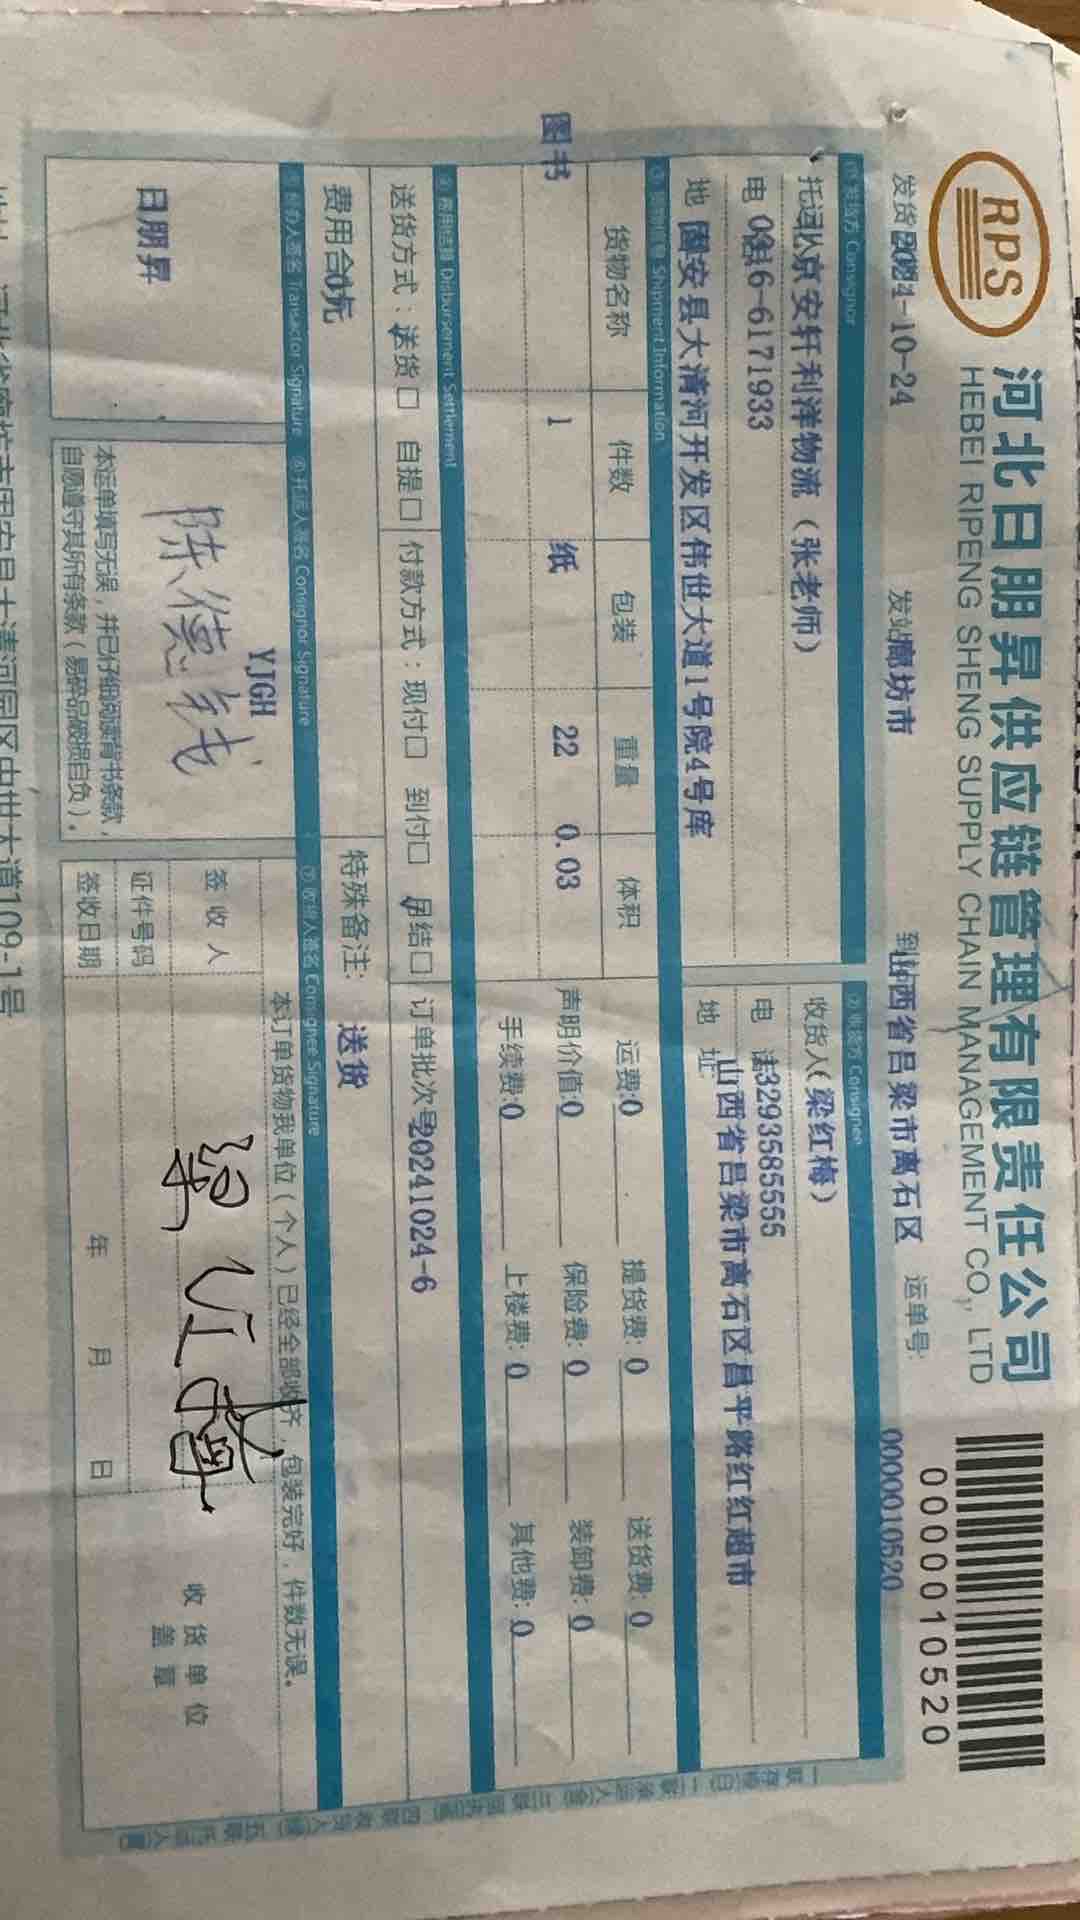 RPS
河北日朋昇供应链管理有限责任公司
HEBEI RIPENG SHENG SUPPLY CHAIN MANAGEMENT CO., LTD
0000010520
发货 2024-10-24 发站 廊坊市 到站 山西省吕梁市离石区 运单号: 0000010520
①发货方 Consignor ②收货方 Consignee
托运 北京安轩利洋物流（张老师） 收货人（梁红梅）
电话 0316-6171933 电话 13293585555
地 固安县大清河开发区伟世大道1号院4号库 地址 山西省吕梁市离石区昌平路红红超市
Shipment Information
货物名称 件数 包装 重量 体积 运费:0 提货费:0 送货费:0
图书 1 纸 22 0.03 声明价值:0 保险费:0 装卸费:0
手续费:0 上楼费:0 其他费:0
④费用结算 Disbursement Settlement
送货方式：送货□ 自提□ 付款方式：现付□ 到付□ 月结□ 订单批次号20241024-6
费用合 0元 特殊备注: 送货
Transactor Signature ⑥托运人签名 Consignor Signature ⑦收货人签名 Consignee Signature
日朋昇
YJGH
本运单填写无误，并已仔细阅读背书条款，
自愿遵守其所有条款（易碎品破损自负）。
本订单货物我单位（个人）已经全部收齐，包装完好，件数无误。
签收人 梁红梅
证件号码
签收日期 年 月 日
收货单位
盖章